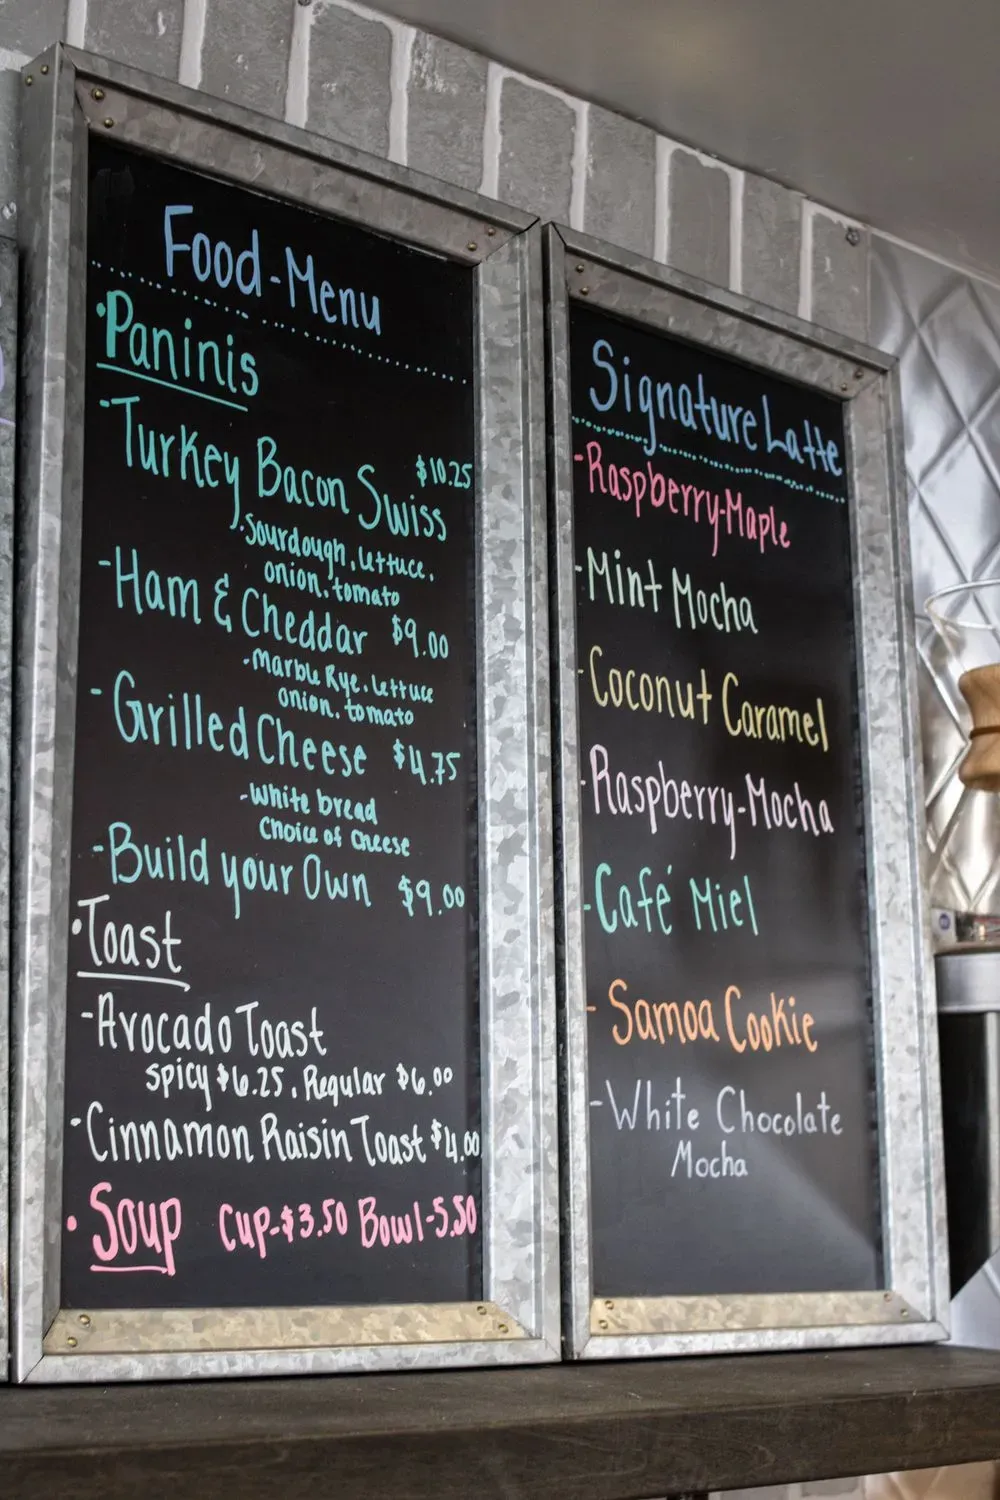 Food-Menu
•Paninis
-Turkey Bacon Swiss $10.25
.Sourdough, lettuce,
onion, tomato
-Ham & Cheddar $9.00
-Marble Rye, lettuce
onion, tomato
-Grilled Cheese $4.75
-White bread
Choice of Cheese
-Build your Own $9.00
•Toast
-Avocado Toast
Spicy $6.25, Regular $6.00
-Cinnamon Raisin Toast $4.00
•Soup Cup-$3.50 Bowl-5.50
Signature Latte
-Raspberry-Maple
-Mint Mocha
-Coconut Caramel
-Raspberry-Mocha
-Café Miel
-Samoa Cookie
-White Chocolate
Mocha